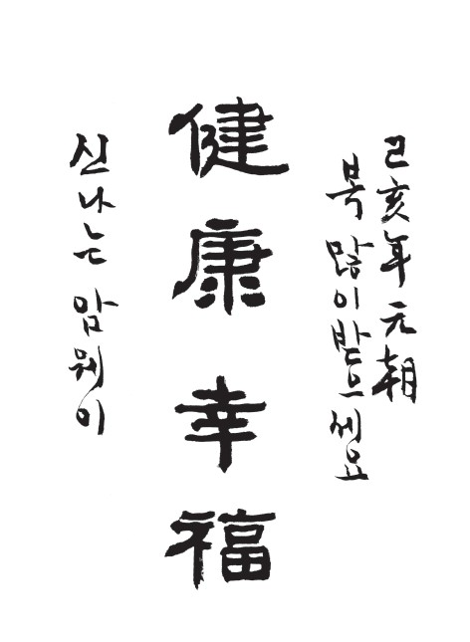 己亥年 元朝
복 많이 받으세요
健康幸福
신나는 암웨이